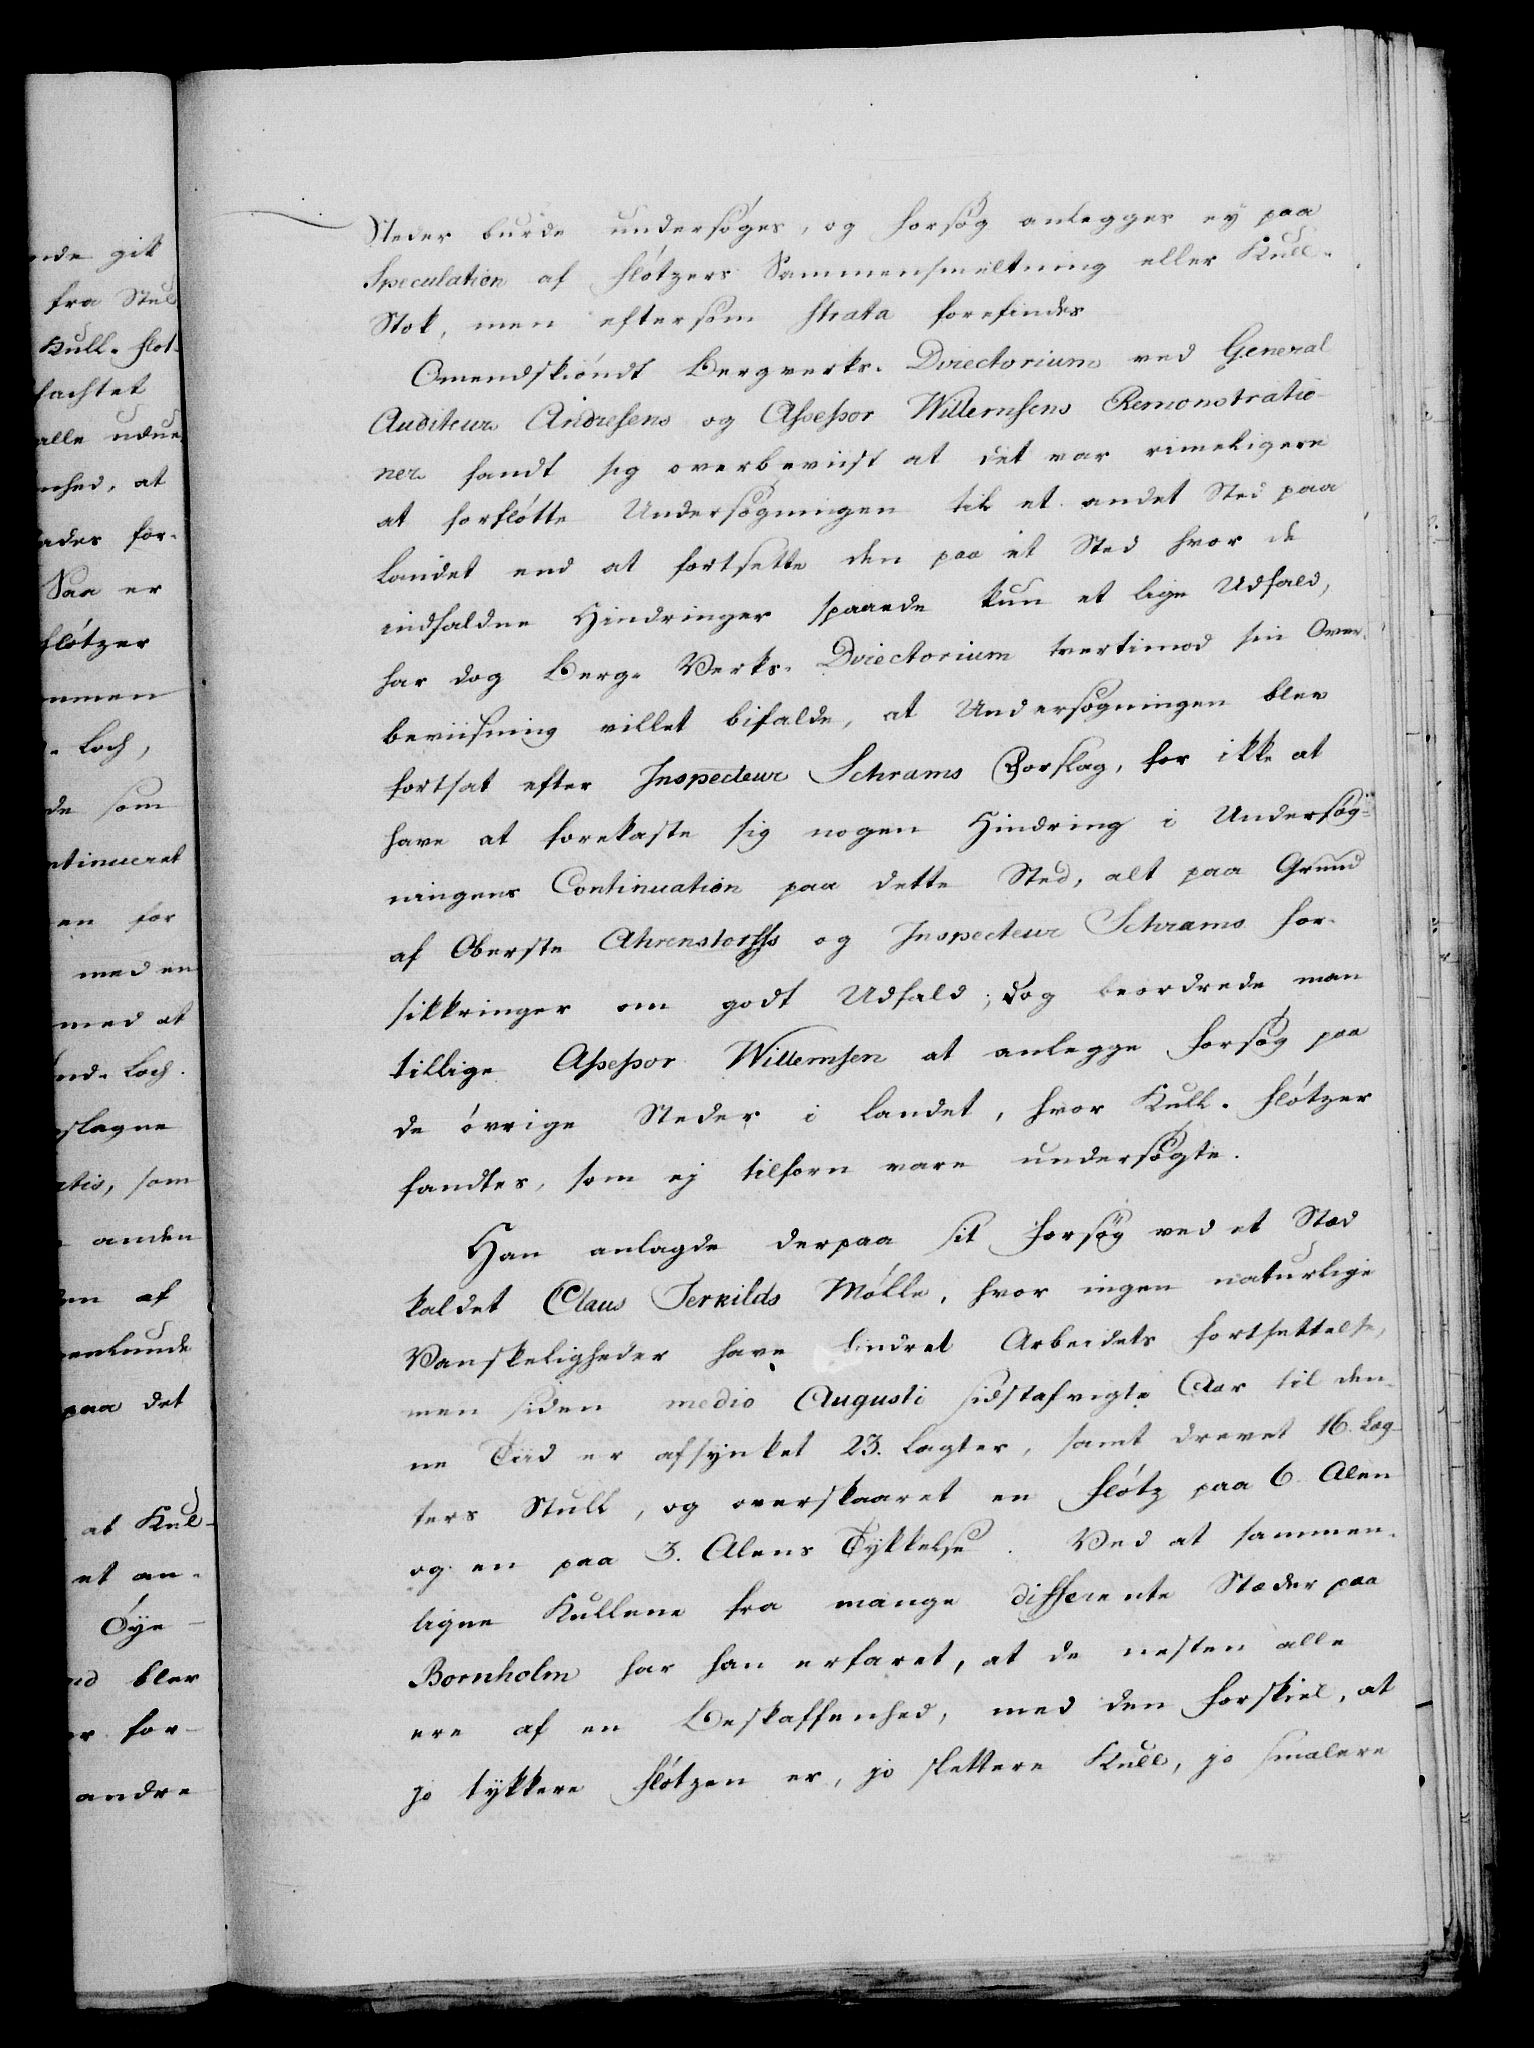 nde gik
fra Stul
Kull-flot-
fachtet
alle udue
nhed, at
ades for-
Saa er
flötzer
mmen
- Loch,
de som
ntinueret
en for
med en
med at
nd-Loch.
slagne
atis, som
anden
den af
enkunde
paa det
at Kul-
et an-
Öye
nd blev
r for-
andre
Steder burde undersøges, og forsøg anlegges ey paa
Speculation af flötzers Sammensmeltning eller Kull-
Stok, men eftersom strata forefindes
Omendskiöndt Bergverks-Directorium ved General
Auditeur Andresens og Assessor Willemsens Remonstratio-
ner fandt sig overbeviist at det var rimeligere
at forflötte Undersøgningen til et andet Sted paa
Landet end at fortsette den paa et Sted hvor de
indfaldne Hindringer spaaede kun et lige Udfald,
har dog Berg-Verks-Directorium tvertimod sin Over-
beviisning villet bifalde, at Undersøgningen blev
fortsat efter Inspecteur Schrams Forslag, for ikke at
have at forekaste sig nogen Hindring i Undersøg-
ningens Continuation paa dette Sted, alt paa Grund
af Oberste Ahrenstorffs og Inspecteur Schrams for-
sikkringer om godt Udfald; dog beordrede man
tillige Assessor Willemsen at anlegge forsøg paa
de övrige Steder i Landet, hvor Kull-flötzer
fandtes, som ej tilforn vare undersøgte.
Han anlagde derpaa sit forsøg ved et Stæd
kaldet Claus Terkilds Mölle, hvor ingen naturlige
Vanskeligheder have hindret Arbeidets fortsettelse,
men siden medio Augusti sidstafvigte Aar til den-
ne Tiid er afsynket 23. Lagter, samt drevet 16. Lag-
ters Stull, og overskaaret en flötz paa 6 Alen
og en paa 3. Alens Tykkelse. Ved at sammen-
ligne Kullene fra mange differente Stæder paa
Bornholm har han erfaret, at de nesten alle
ere af en Beskaffenhed, med den forskiel, at
jo tykkere flötzen er, jo slettere Kull, jo smalere